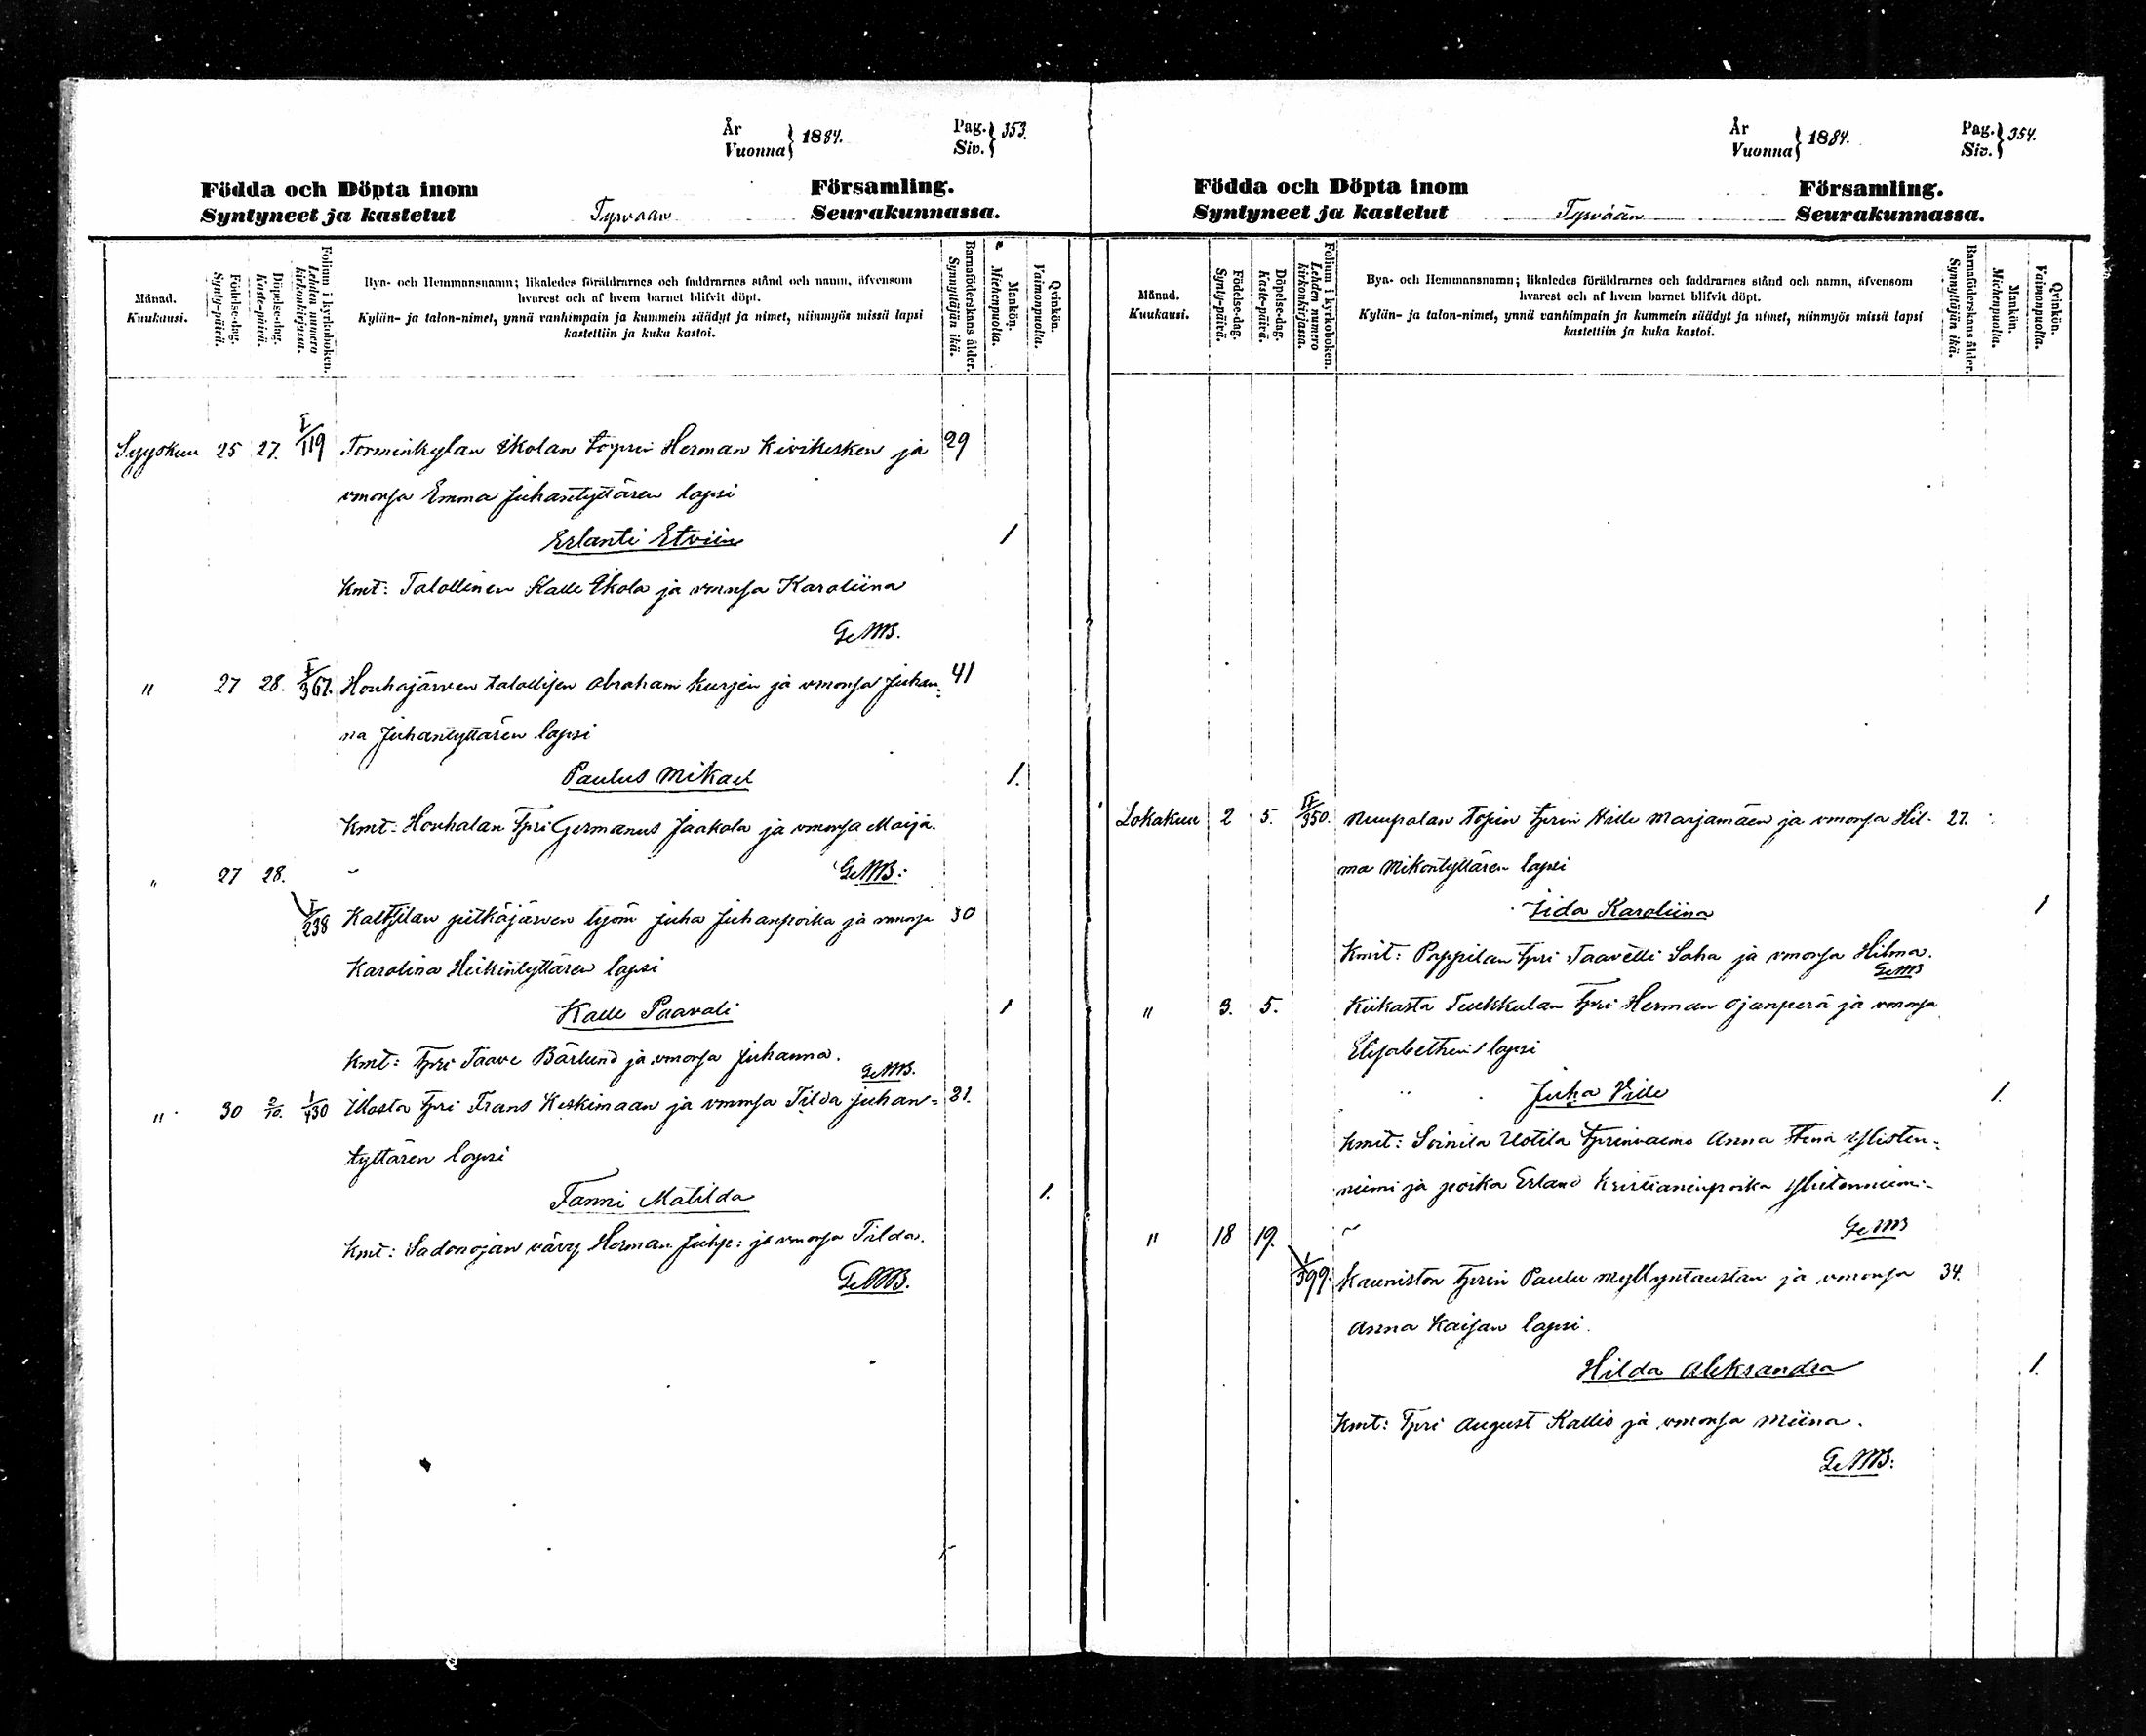 År
Vuonna } 1884.
Pag.
Siv. } 353.
Födda och Döpta inom Församling.
Syntyneet ja kastetut Tyrvään Seurakunnassa.
Månad.
Kuukausi.
Födelse-dag.
Synty-päivä.
Döpelse-dag.
Kaste-päivä.
Folium i kyrkoboken.
Lehden numero
kirkonkirjassa.
Bya- och Hemmansnamn; likaledes föräldrarnes och faddrarnes stånd och namn, äfvensom
hvarest och af hvem barnet blifvit döpt.
Kylän- ja talon-nimet, ynnä vanhimpain ja kummein säädyt ja nimet, niinmyös missä lapsi
kastettiin ja kuka kastoi.
Barnaföderskans ålder.
Synnyttäjän ikä.
Mankön.
Miehenpuolta.
Qvinkön.
Vaimonpuolta.
Syyskuu 25 27. I/119 Torminkylan Ekolan Herman Kivikesken ja 29
vmonsa Emma Juhantyttären lapsi
Erlanti Etviin 1
Kmt: Talollinen Kalle Ekola ja vmonsa Karoliina
G.MB.
" 27 28. I/367. Houhajärven talollisen Abraham Kurjen ja vmonsa Juhan= 41
na Juhantyttären lapsi
Paulus Mikael 1.
Kmt: Houhalan Tpri Germanus Jaakola ja vmonsa Maija.
" 27 28. G.MB:
I/238 Kaltsilan pitkäjärven työm Juha Juhanpoika ja vmonsa 30
Karolina Heikintyttären lapsi
Kalle Paavali 1
Kmt: Tpri Taave Bärlund ja vmonsa Juhanna.
G.MB.
" 30 2/10. 1/430 Illosta Tpri Frans Keskimaan ja vmonsa Tilda Juhan= 21.
tyttären lapsi
Fanni Matilda 1.
Kmt: Sadonojan vävy Herman Juhp: ja vmonsa Tilda.
G.MB.
År
Vuonna } 1884.
Pag.
Siv. } 354.
Födda och Döpta inom Församling.
Syntyneet ja kastetut Tyrvään Seurakunnassa.
Månad.
Kuukausi.
Födelse-dag.
Synty-päivä.
Döpelse-dag.
Kaste-päivä.
Folium i kyrkoboken.
Lehden numero
kirkonkirjassa.
Bya- och Hemmansnamn; likaledes föräldrarnes och faddrarnes stånd och namn, äfvensom
hvarest och af hvem barnet blifvit döpt.
Kylän- ja talon-nimet, ynnä vanhimpain ja kummein säädyt ja nimet, niinmyös missä lapsi
kastettiin ja kuka kastoi.
Barnaföderskans ålder.
Synnyttäjän ikä.
Mankön.
Miehenpuolta.
Qvinkön.
Vaimonpuolta.
Lokakuu 2 5. II/350. Nuupalan Tprin Ville Marjamäen ja vmonsa Hil- 27.
ma Mikontyttären lapsi
Iida Karoliina 1
Kmit: Pappilan Tpri Taavetti Saha ja vmonsa Hilma.
G.MB
" 3. 5. Kiikasta Tuukkulan Tpri Herman Ojanperä ja vmonsa
Elisabethin lapsi
Juha Ville 1.
Kmit: Soinila Uotila Tprinvaimo Anna Stina Ylisten=
niemi ja poika Erland Kristianinpoika
" 18 19. G.MB
I/399. Kauniston Tprin Paulu Myllyntaustan ja vmonsa 34.
Anna Kaisan lapsi.
Hilda Aleksandra 1.
Kmt: Tpri August Kallio ja vmonsa Miina.
G.MB.